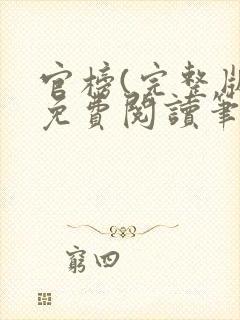 官榜(完整版
免費閱讀筆
窮四